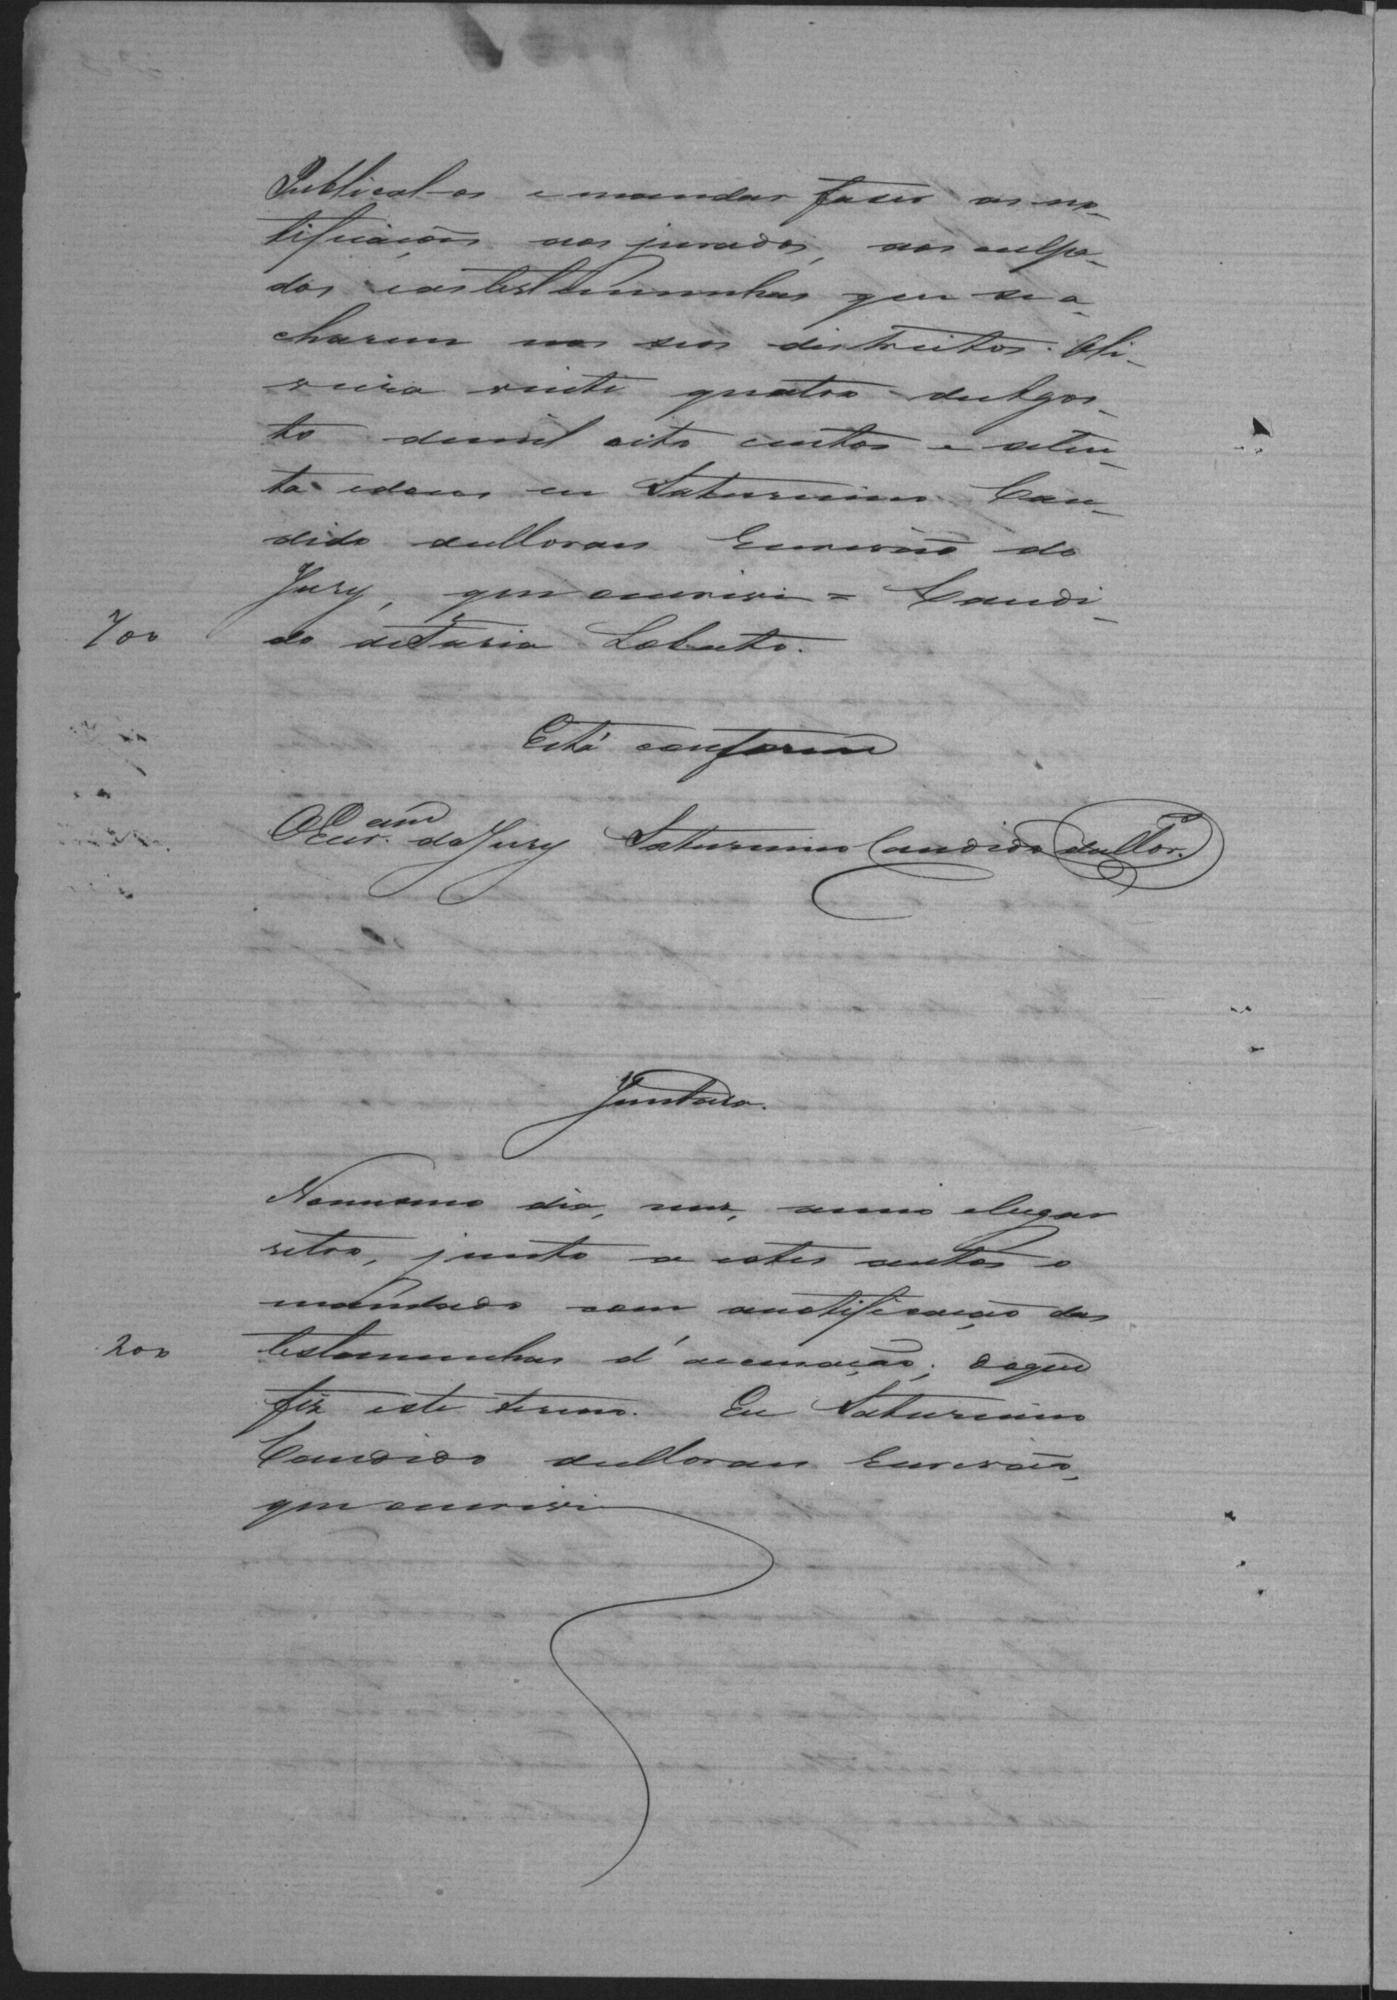 Publical-os e mandar faser as no-
tificações aos jurados, aos culpa-
dos e as testemunhas que se a-
charem nos seos districtos. Oli-
veira vinte quatro de Agos-
to de mil oito centos e seten-
ta e dous eu Saturnino Can-
dido de Moraes Escrivão do
Jury, que escrevi = Candi-
700 do de Faria Lobato.
Está conforme
O Escr.am do Jury Saturnino Candido de Mor.
Juntada.
No mesmo dia, mez, anno e lugar
retro, junto a estes autos o
mandado com a notificação das
200 testemunhas d'acusação; do que
fiz este termo. Eu Saturnino
Candido de Moraes Escrivão,
que escrevi